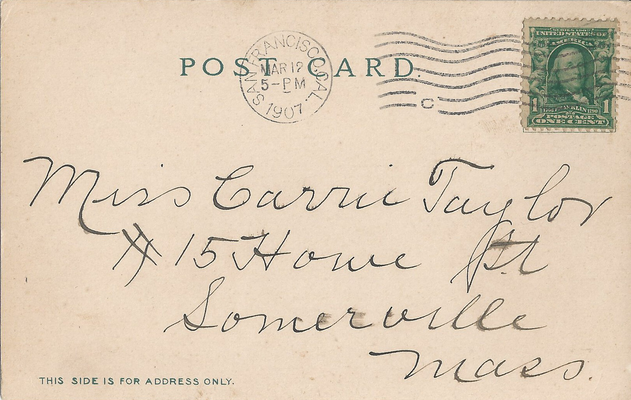 POST CARD
SAN FRANCISCO, CAL.
MAR 12
5-PM
1907
C
UNITED STATES OF
1 1
FRANKLIN
POSTAGE
ONE CENT
Miss Carrie Taylor
# 15 Howe St
Somerville
Mass.
THIS SIDE IS FOR ADDRESS ONLY.